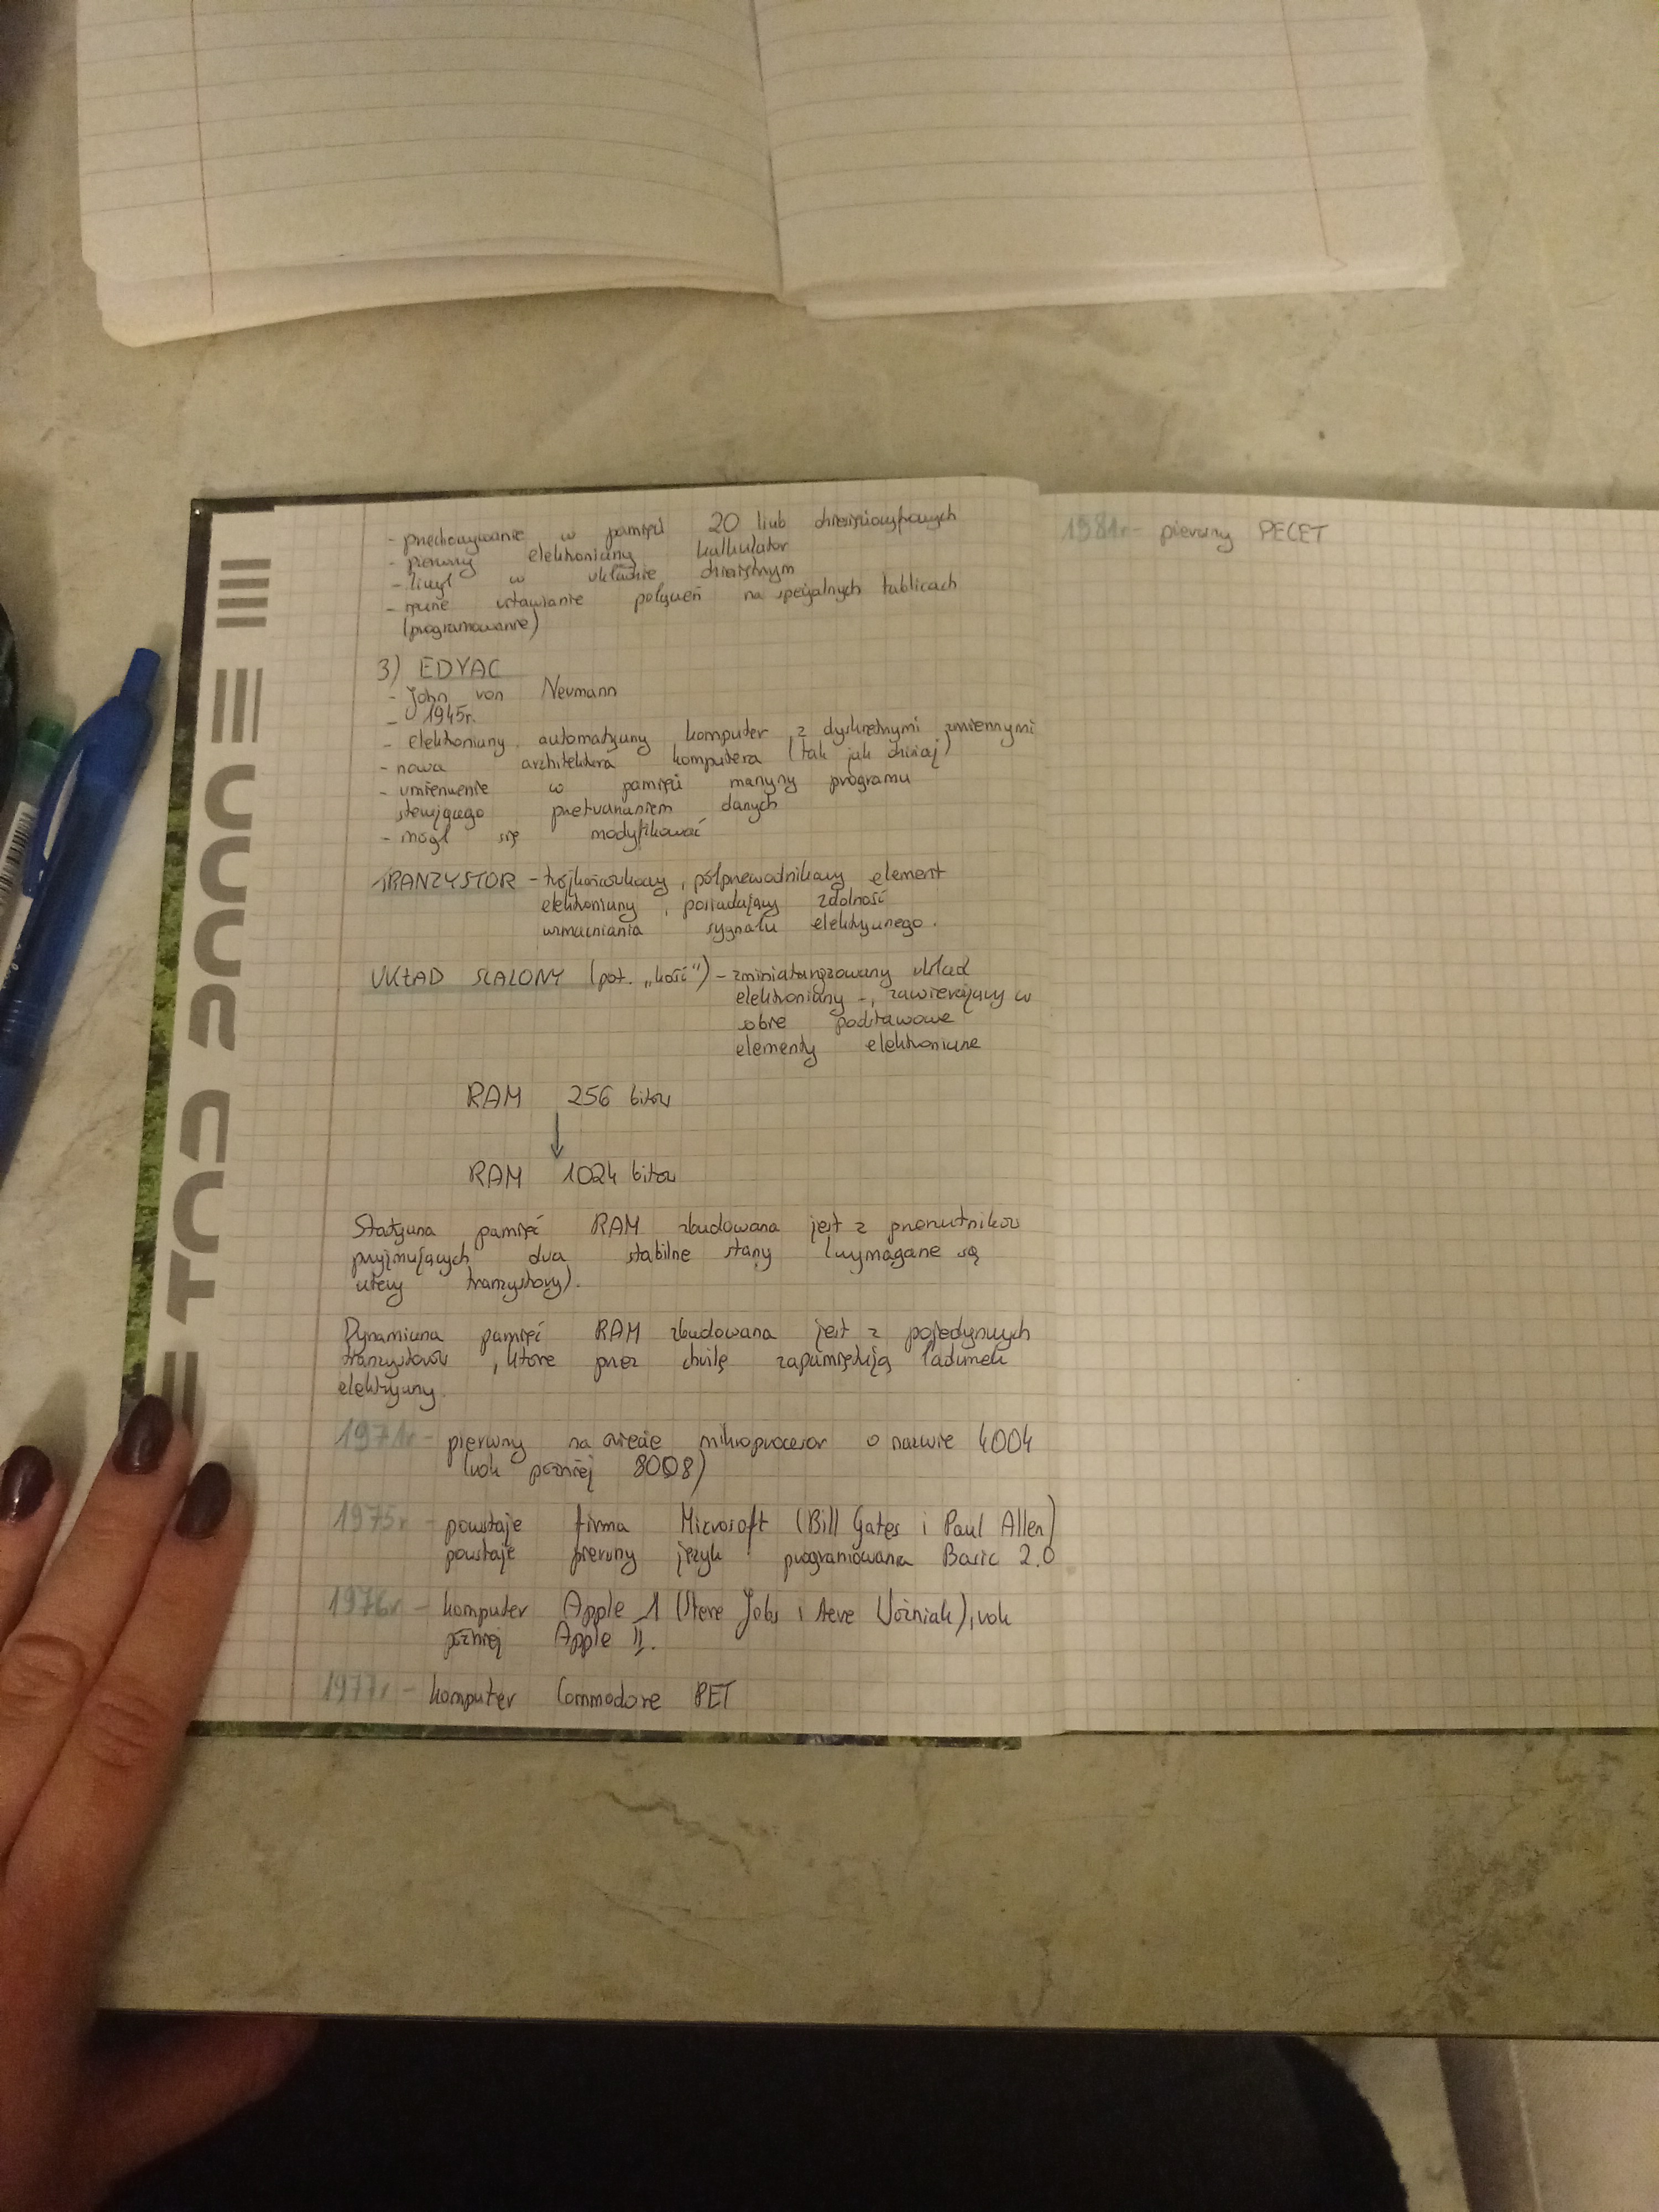 - przechowywanie w pamięci 20 liczb dziesięciocyfrowych
- pierwszy elektroniczny kalkulator
- liczył w układzie dziesiętnym
- ręczne ustawianie połączeń na specjalnych tablicach
(programowanie)
3) EDVAC
- John von Neumann
- 1945r.
- elektroniczny, automatyczny komputer z dyskretnymi zmiennymi
- nowa architektura komputera (tak jak dzisiaj)
- umieszczenie w pamięci maszyny programu
sterującego przetwarzaniem danych
- mógł się modyfikować
TRANZYSTOR - trójkońcówkowy, półprzewodnikowy element
elektroniczny, posiadający zdolność
wzmacniania sygnału elektrycznego.
UKŁAD SCALONY (pot. „kość") - zminiaturyzowany układ
elektroniczny -, zawierający w
sobie podstawowe
elementy elektroniczne
RAM 256 bitów
↓
RAM 1024 bitów
Statyczna pamięć RAM zbudowana jest z przerzutników
przyjmujących dwa stabilne stany (wymagane są
cztery tranzystory).
Dynamiczna pamięć RAM zbudowana jest z pojedynczych
tranzystorów, które przez chwilę zapamiętują ładunek
elektryczny.
1971r - pierwszy na świecie mikroprocesor o nazwie 4004
(rok później 8008)
1975r - powstaje firma Microsoft (Bill Gates i Paul Allen)
powstaje pierwszy język programowania Basic 2.0
1976r - komputer Apple 1 (Steve Jobs i Steve Woźniak), rok
później Apple II.
1977r - komputer Commodore PET
1981r - pierwszy PECET